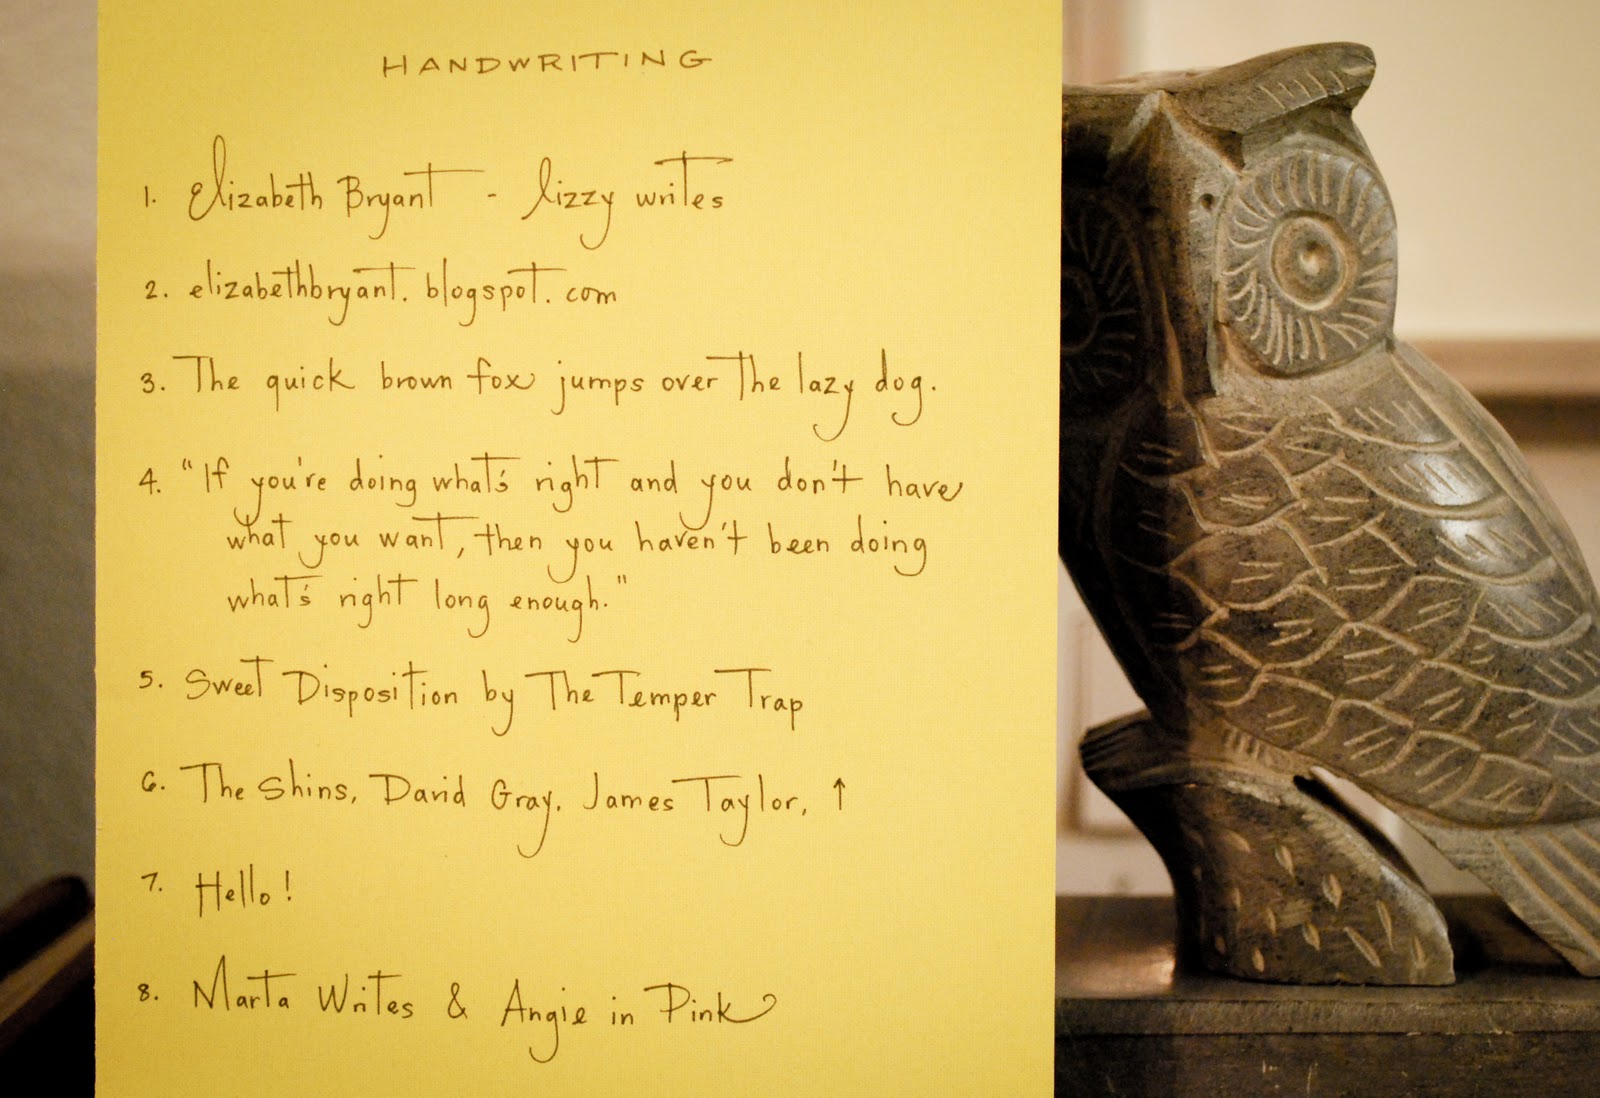 HANDWRITING
1. Elizabeth Bryant - lizzy writes
2. elizabethbryant.blogspot.com
3. The quick brown fox jumps over the lazy dog.
4. "If you're doing what's right and you don't have
what you want, then you haven't been doing
what's right long enough."
5. Sweet Disposition by The Temper Trap
6. The Shins, David Gray, James Taylor, ↑
7. Hello!
8. Marta Writes & Angie in Pink